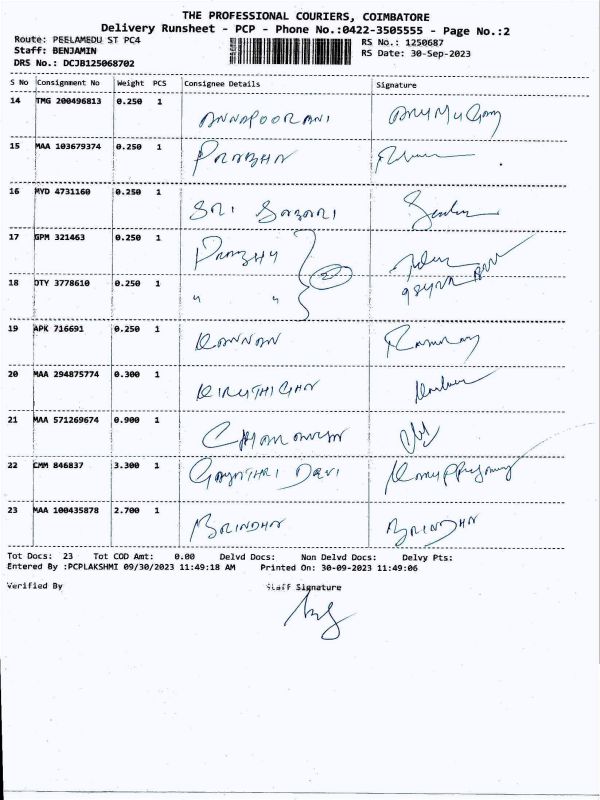 THE PROFESSIONAL COURIERS, COIMBATORE
Delivery Runsheet - PCP - Phone No.:0422-3505555 - Page No.:2
Route: PEELAMEDU ST PC4
RS No.: 1250687
Staff: BENJAMIN
RS Date: 30-Sep-2023
DRS No.: DCJB125068702
S No Consignment No Weight PCS Consignee Details Signature
14 TMG 200496813 0.250 1 ANNAPOORANI
15 MAA 103679374 0.250 1 PRABHN
16 MYD 4731160 0.250 1 SRI SABARI
17 GPM 321463 0.250 1 PRABHU
18 DTY 3778610 0.250 1 " " 2
19 APK 716691 0.250 1 KANNAN
20 MAA 294875774 0.300 1 KIRUTHIGHA
21 MAA 571269674 0.900 1
22 CMM 846837 3.300 1 GAYATHRI DEVI
23 MAA 100435878 2.700 1 BRINDHA BRINDHA
Tot Docs: 23 Tot COD Amt: 0.00 Delvd Docs: Non Delvd Docs: Delvy Pts:
Entered By :PCPLAKSHMI 09/30/2023 11:49:18 AM Printed On: 30-09-2023 11:49:06
Verified By Staff Signature